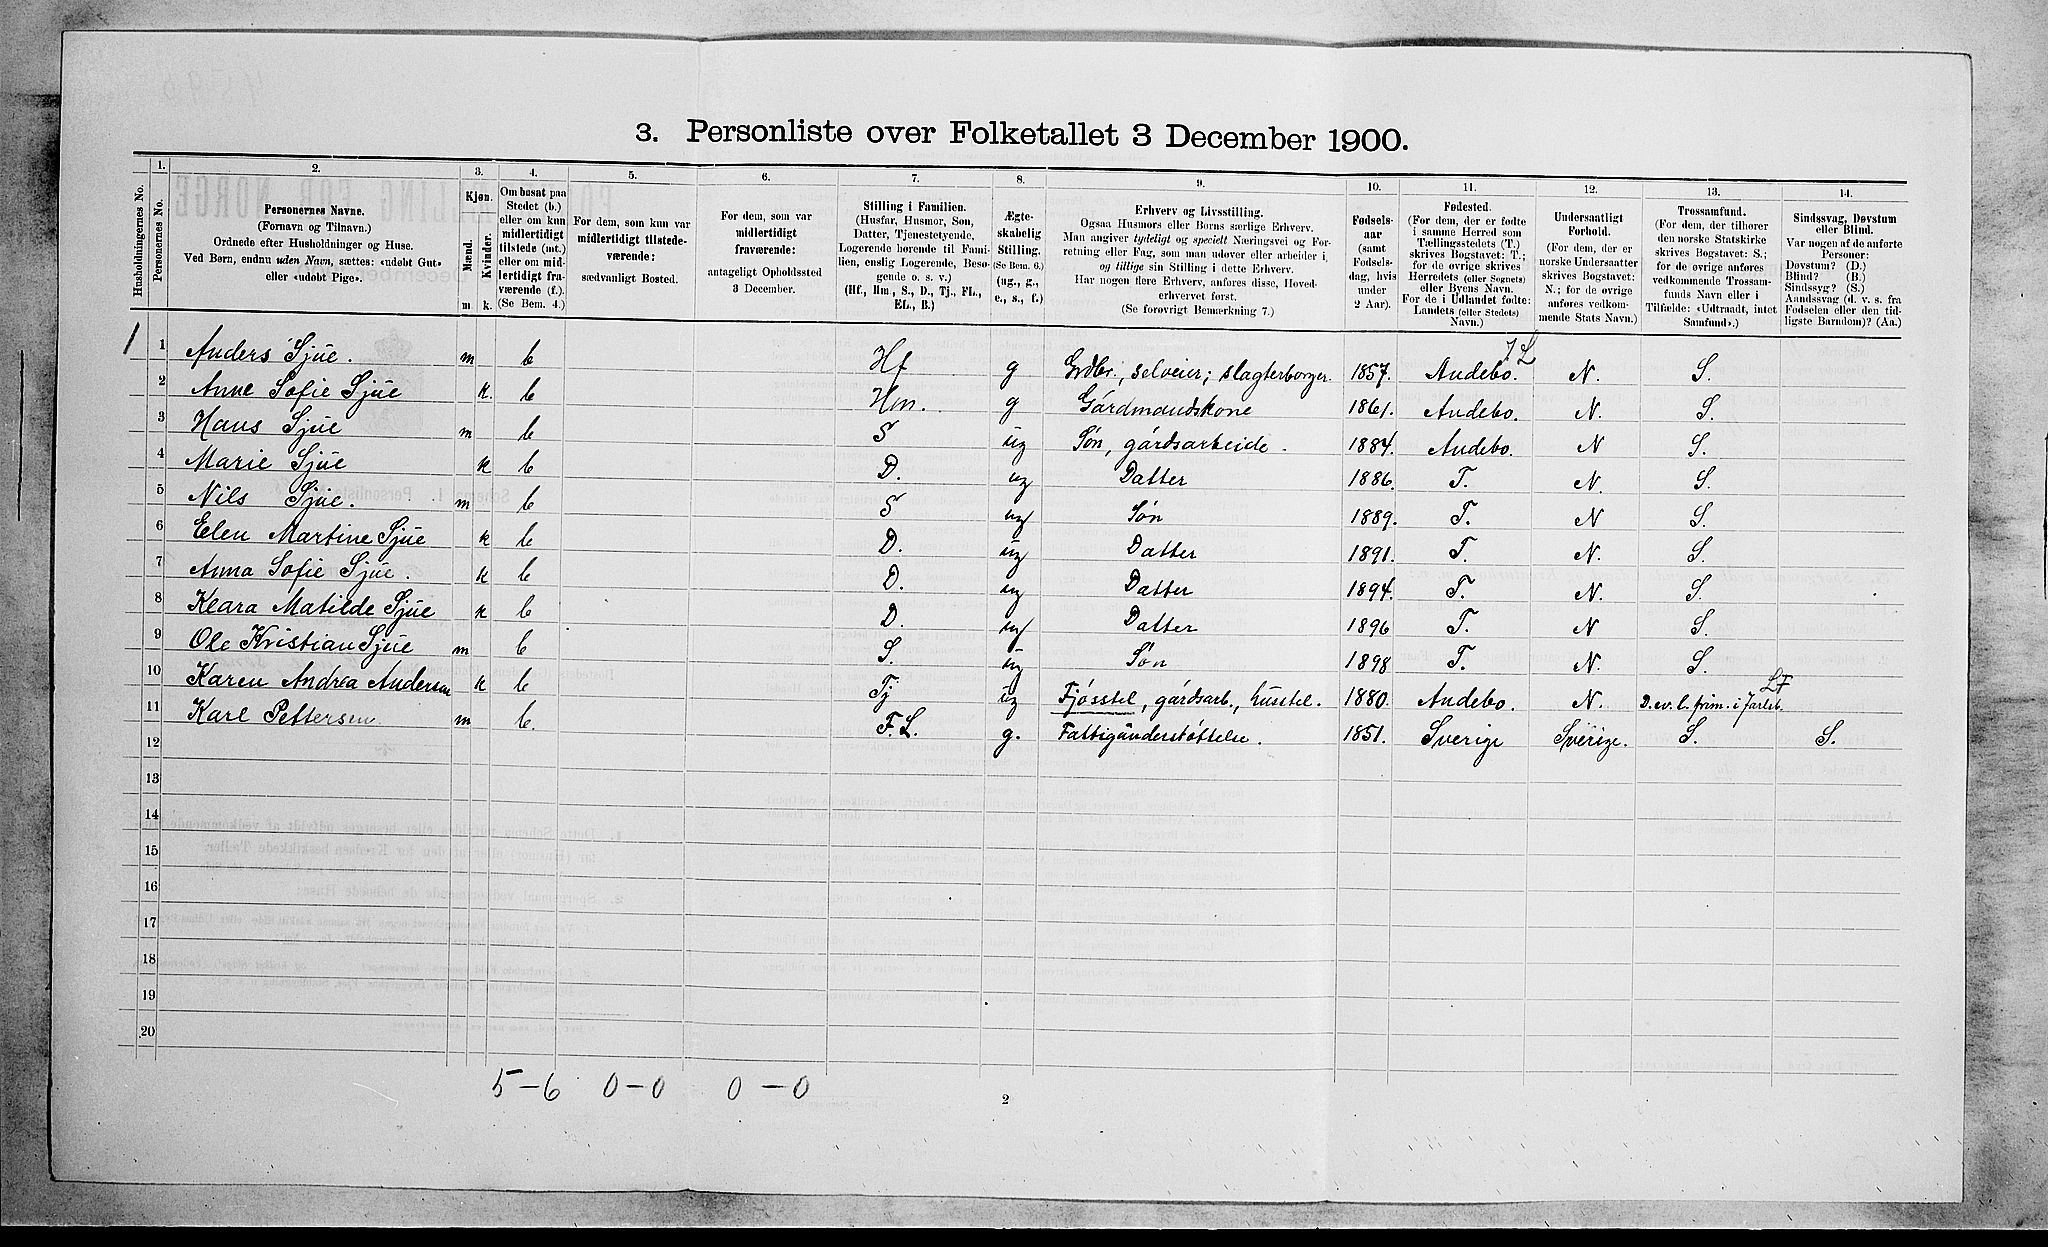 3. Personliste over Folketallet 3 December 1900.
Husholdningernes No.
1.
Personernes No.
2.
Personernes Navne.
(Fornavn og Tilnavn.)
Ordnede efter Husholdninger og Huse.
Ved Børn, endnu uden Navn, sættes: «udøbt Gut»
eller «udøbt Pige».
3.
Kjøn.
Mænd.
Kvinder.
m. k.
4.
Om bosat paa
Stedet (b.)
eller om kun
midlertidigt
tilstede (mt.)
eller om mid-
lertidigt fra-
værende (f.).
(Se Bem. 4.)
5.
For dem, som kun var
midlertidigt tilstede-
værende:
sædvanligt Bosted.
6.
For dem, som var
midlertidigt
fraværende:
antageligt Opholdssted
3 December.
7.
Stilling i Familien.
(Husfar, Husmor, Søn,
Datter, Tjenestetyende,
Logerende hørende til Fami-
lien, enslig Logerende, Besø-
gende o. s. v.)
(Hf., Hm., S., D., Tj., FL.,
EL., B.)
8.
Ægte-
skabelig
Stilling.
(Se Bem. 6.)
(ug., g.,
e., s., f.)
9.
Erhverv og Livsstilling.
Ogsaa Husmors eller Børns særlige Erhverv.
Man angiver tydeligt og specielt Næringsvei og For-
retning eller Fag, som man udøver eller arbeider i,
og tillige sin Stilling i dette Erhverv.
Har nogen flere Erhverv, anføres disse, Hoved-
erhvervet først.
(Se forøvrigt Bemærkning 7.)
10.
Fødsels-
aar
(samt
Fødsels-
dag, hvis
under
2 Aar).
11.
Fødested.
(For dem, der er fødte
i samme Herred som
Tællingsstedets (T.)
skrives Bogstavet: T.;
for de øvrige skrives
Herredets (eller Sognets)
eller Byens Navn.
For de i Udlandet fødte:
Landets (eller Stedets)
Navn.)
12.
Undersaatligt
Forhold.
(For dem, der er
norske Undersaatter
skrives Bogstavet:
N.; for de øvrige
anføres vedkom-
mende Stats Navn.)
13.
Trossamfund.
(For dem, der tilhører
den norske Statskirke
skrives Bogstavet: S.;
for de øvrige anføres
vedkommende Trossam-
funds Navn eller i
Tilfælde: «Udtraadt, intet
Samfund».)
14.
Sindssvag, Døvstum
eller Blind.
Var nogen af de anførte
Personer:
Døvstum? (D.)
Blind? (B.)
Sindssyg? (S.)
Aandssvag (d. v. s. fra
Fødselen eller den tid-
ligste Barndom)? (Aa.)
1 1 Anders Sjue. m b Hf g Grdbr., selveier; slagterborger. 1857. Andebo. JL N. S.
2 Anne Sofie Sjue k. b Hm. g Gårdmandskone 1861. Andebo. N. S.
3 Hans Sjue m b S ug Søn, gårdsarbeide. 1884. Andebo. N S.
4 Marie Sjue k b D. ug Datter 1886. T. N. S.
5 Nils Sjue. m b S ug Søn 1889. T. N S.
6 Elen Martine Sjue k b D. ug Datter 1891. T. N. S.
7 Anna Sofie Sjue. k b D. ug Datter 1894. T. N. S.
8 Klara Matilde Sjue k b D. ug Datter 1896 T. N S.
9 Ole Kristian Sjue m b S. ug Søn 1898 T. N. S.
10 Karen Andrea Andersen k b Tj ug Fjøsstel, gårdsarb., husstel. 1880. Andebo. N. D. ev. l. frim. i Jarlsb. LF
11 Karl Pettersen m b. F.L. g. Fattigunderstøttelse. 1851. Sverige Sverige. S. S.
12
13
14
15
16
17
18
19
20
5-6 0-0 0-0
2